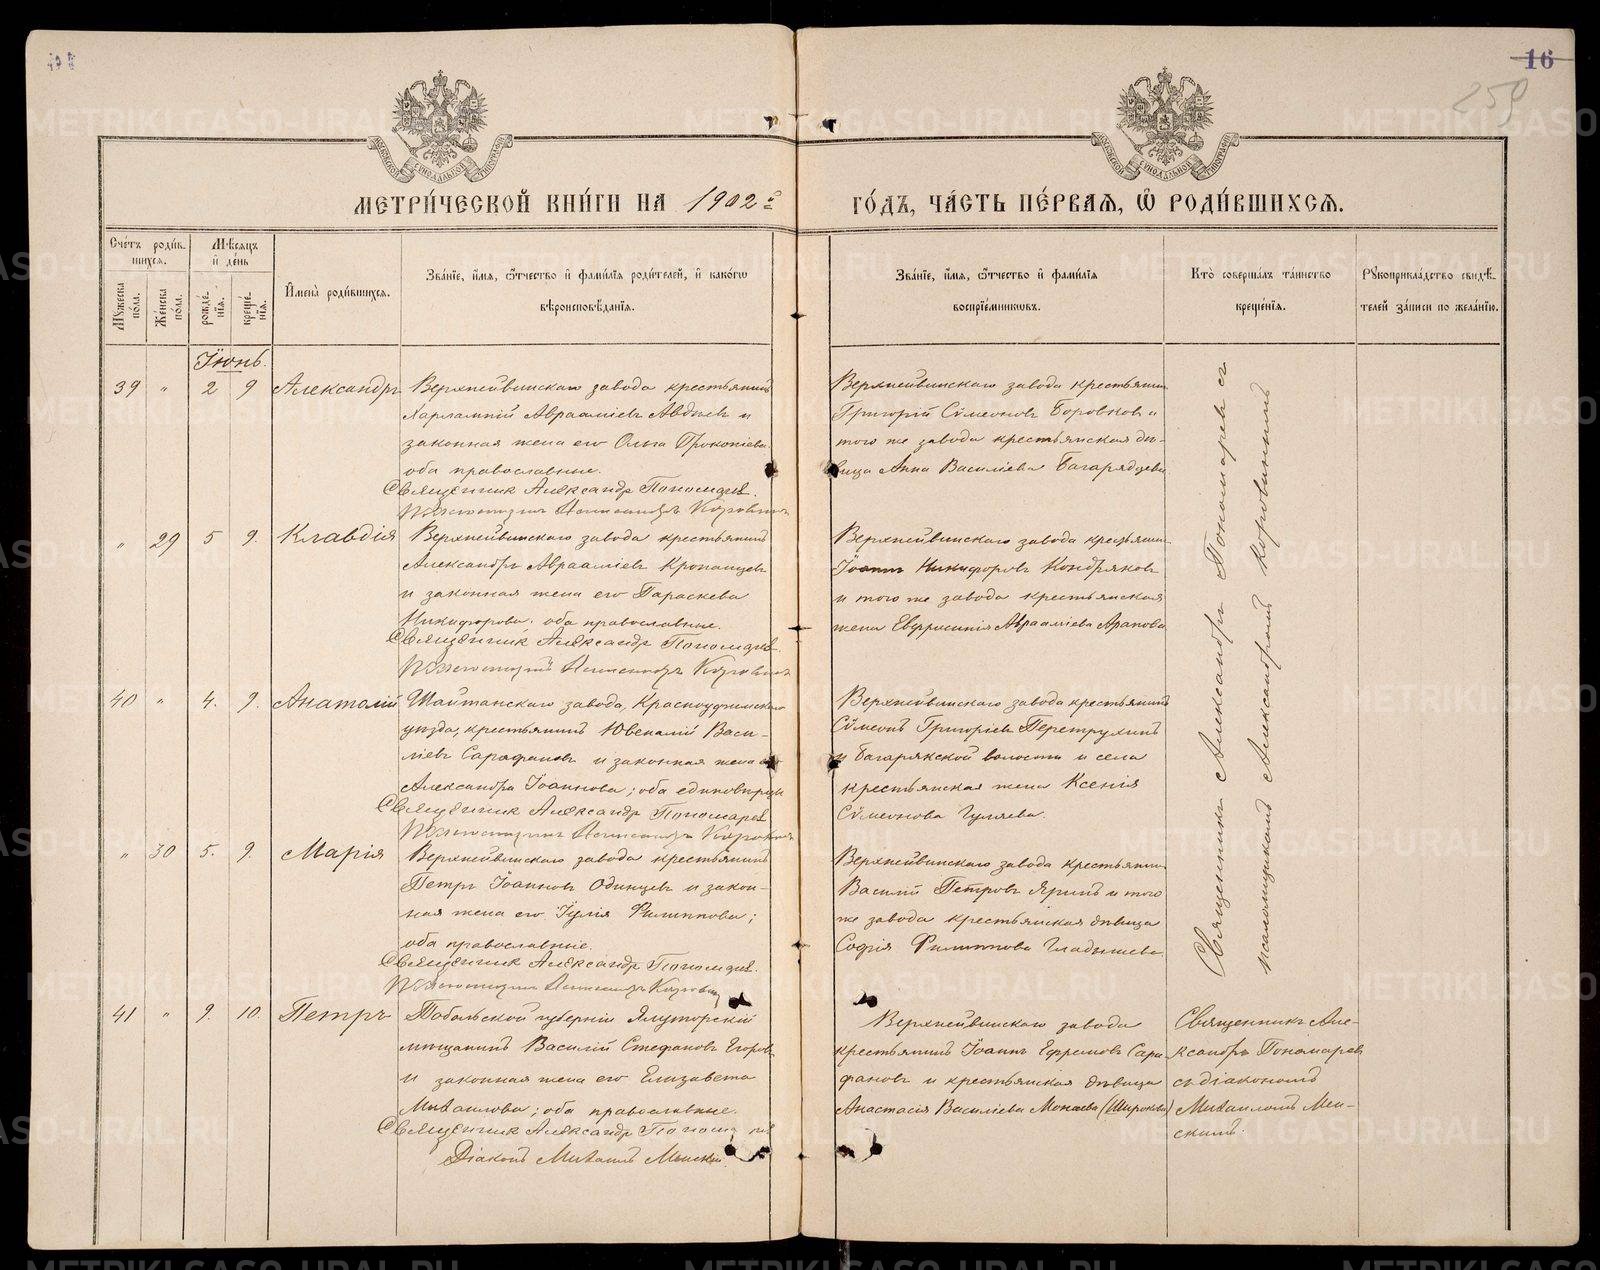 16
259
МЕТРИ́ЧЕСКОЙ КНИ́ГИ НА 1902 й
ГО́ДЪ, ЧА́СТЬ ПЕ́РВАѦ, Ѽ РОДИ́ВШИХСѦ.
Сче́тъ роди́в-
шихсѧ.
Мꙋ́жеска по́ла.
Же́нска по́ла.
Мѣ́сѧцъ
и҆ де́нь
рожде́-
нїѧ.
креще́-
нїѧ.
И҆мена̀ роди́вшихсѧ.
Зва́нїе, и҆́мѧ, ѻ҆́тчество и҆ фами́лїѧ роди́телей, и҆ како́гѡ
вѣроисповѣ́данїѧ.
Зва́нїе, и҆́мѧ, ѻ҆́тчество и҆ фами́лїѧ
воспрїе́мниковъ.
Кто̀ соверша́лъ та́инство
креще́нїѧ.
Рꙋкоприкла́дство свидѣ́-
телей за́писи по жела́нїю.
Іюнь.
39 " 2 9 Александръ
Верхнейвинскаго завода крестьянинъ
Харлампій Аврааміевъ Авдѣевъ и
законная жена его Ольга Прокопіева
оба православные.
Священник Александр Пономарев.
Верхнейвинскаго завода крестьянин
Григорій Сѵмеоновъ Боровковъ и
того же завода крестьянская дѣ-
вица Анна Василіева Багарядцева
" 29 5 9. Клавдія
Верхнейвинскаго завода крестьянинъ
Александръ Аврааміевъ Кропанцевъ
и законная жена его Параскева
Никифорова. оба православные.
Священник Александр Пономарев.
Верхнейвинскаго завода крестьянин
Іоаннъ Никифоровъ Кондряковъ
и того же завода крестьянская
жена Евфросинія Аврааміева Арапова
40 " 4. 9. Анатолій
Шайтанскаго завода, Красноуфимскаго
уѣзда, крестьянинъ Ювеналій Васи-
ліевъ Сарафановъ и законная жена его
Александра Іоаннова; оба единовѣрцы
Священник Александр Пономарев
Верхнейвинскаго завода крестьянинъ
Сѵмеонъ Григоріевъ Перетрухинъ
и Багарякской волости и села
крестьянская жена Ксенія
Сѵмеонова Гуляева.
" 30 5. 9. Марія
Верхнейвинскаго завода крестьянинъ
Петръ Іоанновъ Одинцевъ и закон-
ная жена его Іулія Филиппова;
оба православные.
Священник Александр Пономарев.
Верхнейвинскаго завода крестьянин
Василій Петровъ Яринъ и того
же завода крестьянская дѣвица
Софія Филиппова Гладышева
Священникъ Александръ Пономаревъ съ
псаломщикомъ Александромъ Коровинымъ
41 " 9. 10. Петръ
Тобольской губерніи Ялуторскій
мѣщанинъ Василій Стефановъ Егоровъ
и законная жена его Елизавета
Михаилова; оба православные.
Священник Александр Пономарев
Діаконъ Михаилъ Менскій.
Верхнейвинскаго завода
крестьянинъ Іоаннъ Ефремовъ Сара-
фановъ и крестьянская дѣвица
Анастасія Василіева Мокѣева (Широкова)
Священникъ Але-
ксандръ Пономаревъ
съ діакономъ
Михаиломъ Мен-
скимъ.
METRIKI.GASO-URAL.RU